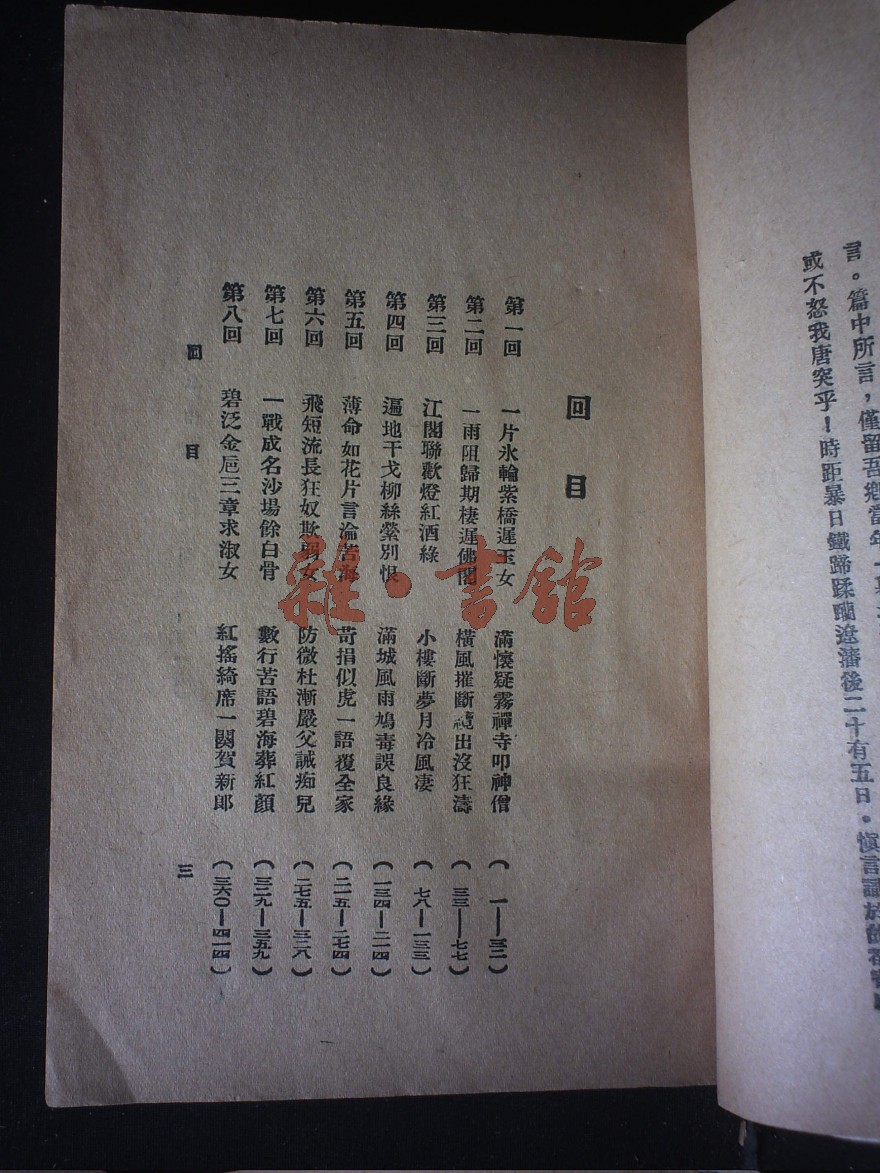 言。篇中所言，僅留吾鄉當年一
或不怒我唐突乎！時距暴日鐵蹄蹂躪遼瀋後二十有五日。愼言識於
回目
第一回 一片氷輪紫橋遲玉女 滿懷疑霧禪寺叩神僧 （一—三二）
第二回 一雨阻歸期棲遲佛閣 橫風摧斷纜出沒狂濤 （三三—七七）
第三回 江閣聯歡燈紅酒綠 小樓斷夢月冷風凄 （七八—一三三）
第四回 遍地干戈柳絲縈別恨 滿城風雨鳩毒誤良緣 （一三四—二一四）
第五回 薄命如花片言淪苦海 苛捐似虎一語覆全家 （二一五—二七四）
第六回 飛短流長狂奴欺弱女 防微杜漸嚴父誡痴兒 （二七五—三二八）
第七回 一戰成名沙場餘白骨 數行苦語碧海葬紅顏 （三二九—三五九）
第八回 碧泛金巵三章求淑女 紅搖綺席一闋賀新郎 （三六〇—四一四）
回目 三
雜·書館